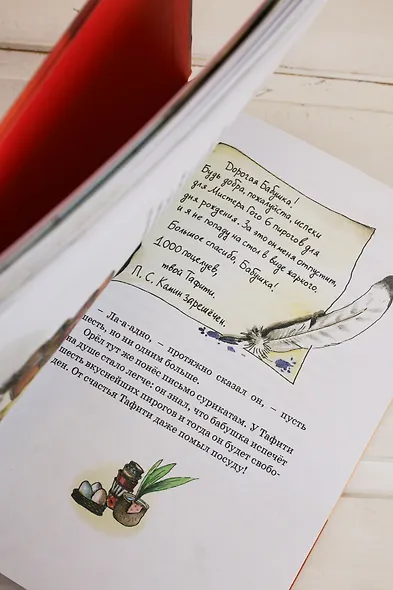 Дорогая Бабушка!
Будь добра, пожалуйста, испеки
для Мистера Гого 6 пирогов для
дня рождения. За это он меня отпустит,
и я не попаду на стол в виде жаркого.
Большое спасибо, Бабушка!
1000 поцелуев,
твой Тафити.
П. С. Камин зарешечен.
– Ла-а-адно, – протяжно сказал он, – пусть
шесть, но ни одним больше.
Орёл тут же понёс письмо сурикатам. У Тафити
на душе стало легче: он знал, что бабушка испечёт
шесть вкуснейших пирогов и тогда он будет свобо-
ден. От счастья Тафити даже помыл посуду!